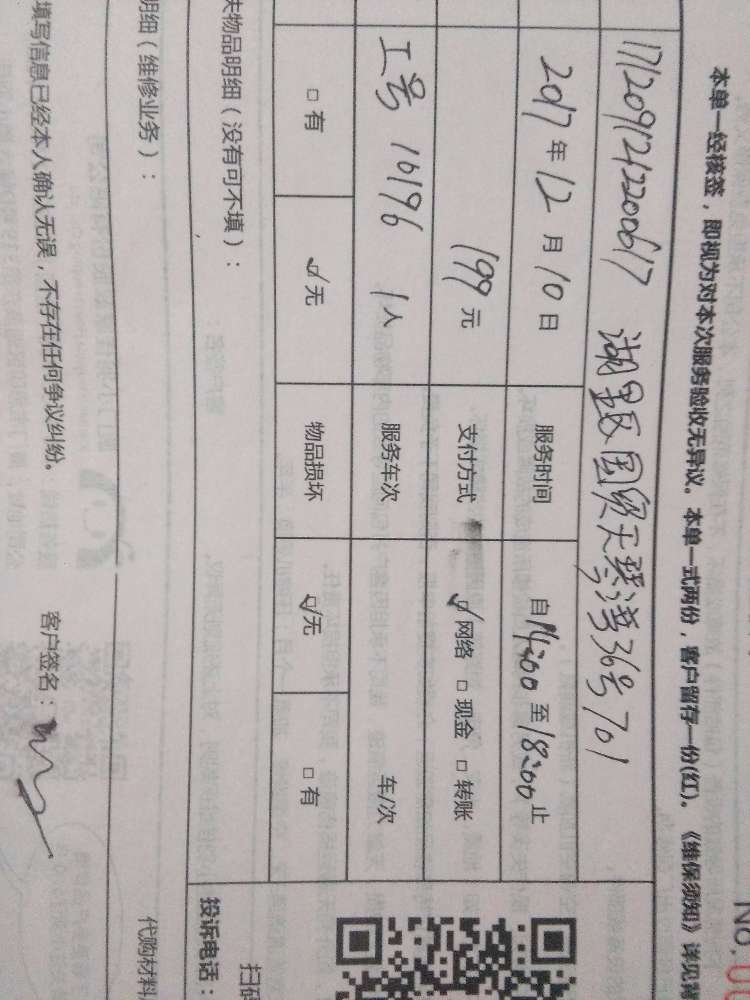 本单一经核签，即视为对本次服务验收无异议。本单一式两份，客户留存一份(红)。《维保须知》详见
No.
1712091242200617 湖里区国贸天琴湾36号701
2017年12月10日 服务时间 自14:00至18:00止
199元 支付方式 ☑网络 □现金 □转账
工号 10196 1人 服务车次 车/次
□有 ☑无 物品损坏 ☑无 □有
失物品明细（没有可不填）：
投诉电话：
扫码
明细（维修业务）：
代购材料
填写信息已经本人确认无误，不存在任何争议纠纷。
客户签名：